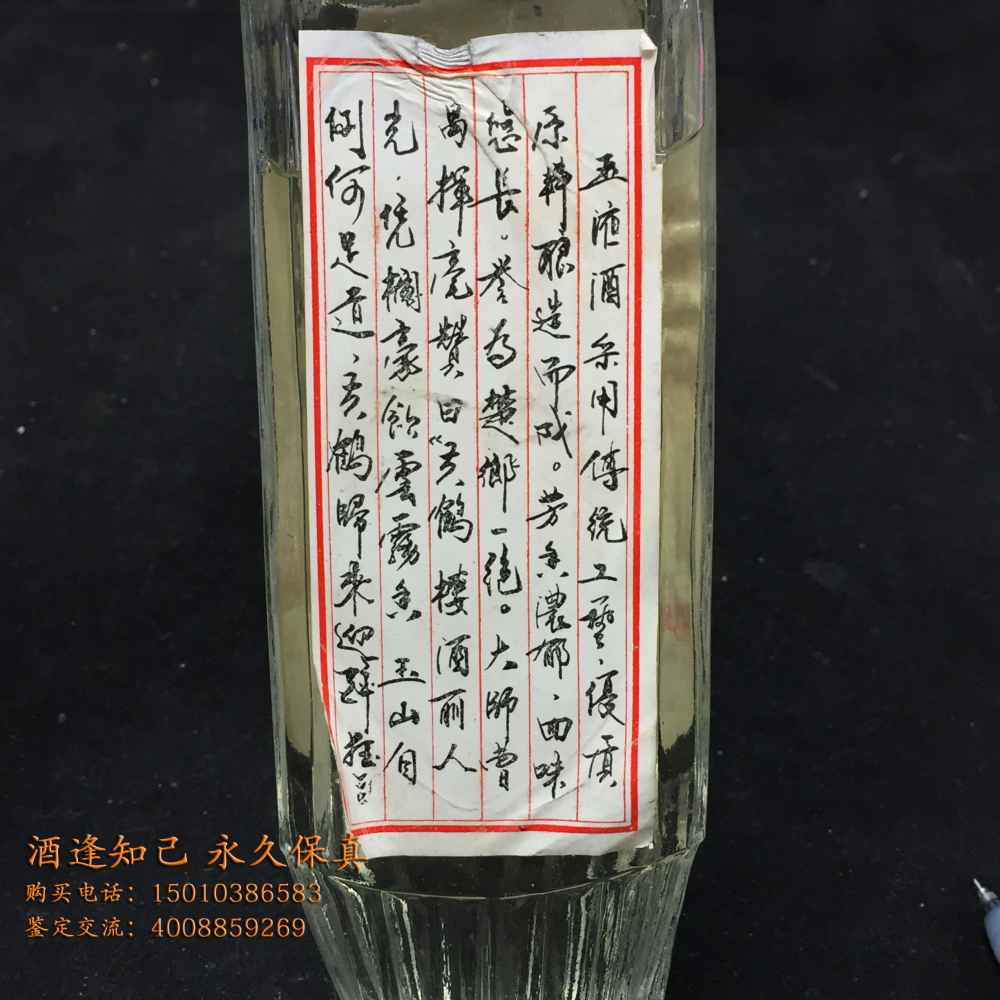 五液酒采用傳统工藝、優质
原料釀造而成。芳香濃郁、回味
悠長。誉为楚鄉一絕。大師曹
禺揮毫贊曰“黄鶴樓酒丽人
光、凭欄豪飲雲霧香、玉山自
倒何足道、黄鶴歸來迎醉
酒逢知己 永久保真
购买电话：15010386583
鉴定交流：4008859269